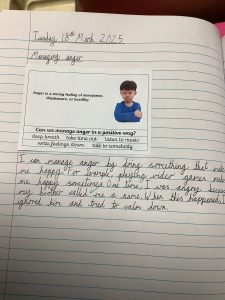 Tuesday 18th March 2025
Managing anger
Anger is a strong feeling of annoyance,
displeasure, or hostility.
Can we manage anger in a positive way?
deep breath take time out listen to music
write feelings down talk to somebody
I can manage anger by doing something that make
me happy. For example playing video games make
me happy sometimes. One time, I was angry because
my brother called me a name. When this happened, I
ignored him and tried to calm down.